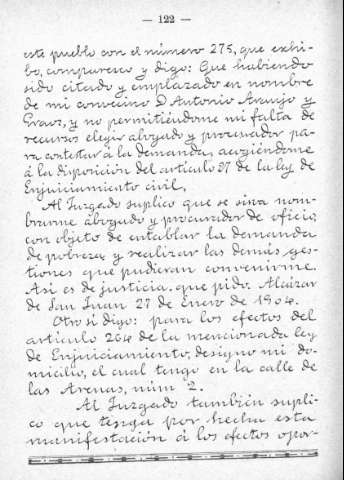 — 122 —
este pueblo con el número 275, que exhi-
bo, comparezco y digo: Que habiendo
sido citado y emplazado en nombre
de mi convecino D. Antonio Araujo y
y no permitiéndome mi falta de
recursos elegir abogado y procurador pa-
ra contestar á la demanda, acogiéndome
á la disposición del artículo 37 de la ley de
Enjuiciamiento civil,
Al Juzgado suplico que se sirva nom-
brarme abogado y procurador de oficio,
con objeto de entablar la demanda
de pobreza y realizar las demás ges-
tiones que pudieran convenirme.
Así es de justicia que pido. Alcázar
de San Juan 27 de Enero de 1904.
Otro sí digo: para los efectos del
artículo 264 de la mencionada ley
de Enjuiciamiento, designo mi do-
micilio, el cual tengo en la calle de
las Arenas, núm 2.
Al Juzgado también supli-
co que tenga por hecha esta
manifestación á los efectos opor-